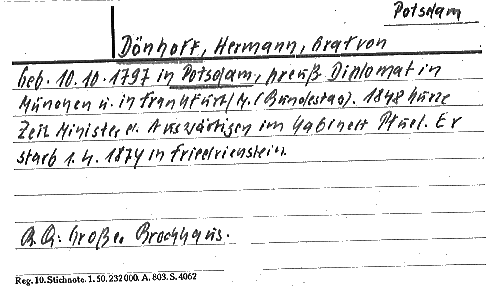 Potsdam
Dönhoff, Hermann, Graf von
Geb. 10.10.1797 in Potsdam, preuß Diplomat in
München u. in Frankfurt/M. (Bundestag). 1848 kurze
Zeit Minister d. Auswärtigen im Kabinett Pfuel. Er
starb 1.4.1874 in Friedrichstein.
Großer Brockhaus.
Reg. 10. Stichnote. 1. 50. 232000. A. 803. S. 4062